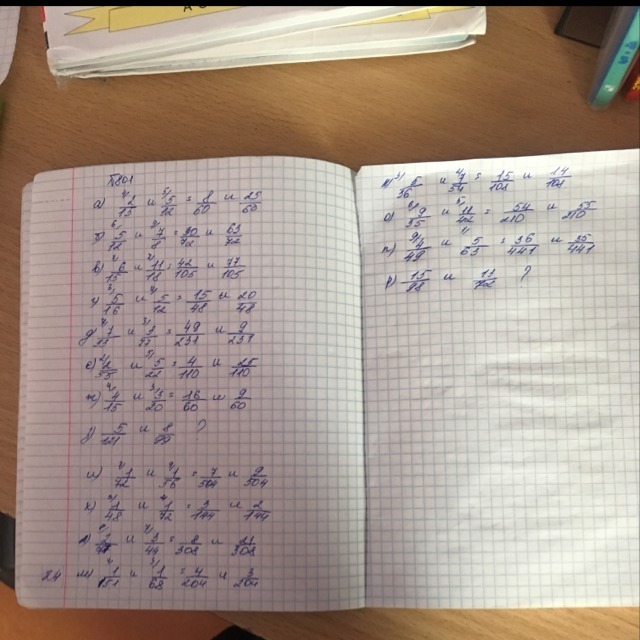 №801
а) 2/15 и 5/12 = 8/60 и 25/60
б) 5/18 и 7/8 = 20/72 и 63/72
в) 6/15 и 11/15 = 42/105 и 77/105
г) 5/16 и 5/12 = 15/48 и 20/48
д) 7/33 и 3/77 = 49/231 и 9/231
е) 2/55 и 5/22 = 4/110 и 25/110
ж) 4/15 и 3/20 = 16/60 и 9/60
з) 5/121 и 8/99 ?
и) 1/72 и 1/56 = 7/504 и 9/504
к) 1/48 и 1/72 = 3/144 и 2/144
л) и 3/44 = 8/308 и 21/308
м) 1/51 и 1/68 = 4/204 и 3/204
н) 5/36 и 7/54 = 15/108 и 14/108
о) 9/35 и 11/42 = 54/210 и 55/210
п) 4/49 и 5/63 = 36/441 и 35/441
р) 15/88 и ?